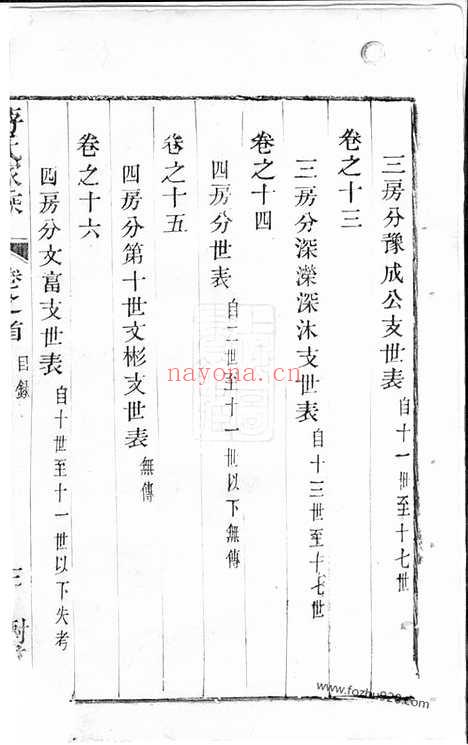 三房分豫成公支世表 自十一世至十七世
卷之十三
三房分深濚深沐支世表 自十三世至十七世
卷之十四
四房分世表 自二世至十一世以下無傳
卷之十五
四房分第十世文彬支世表 無傳
卷之十六
四房分文富支世表 自十世至十一世以下失考
卷之首 目錄
nayona.cn
www.fozhu920.com